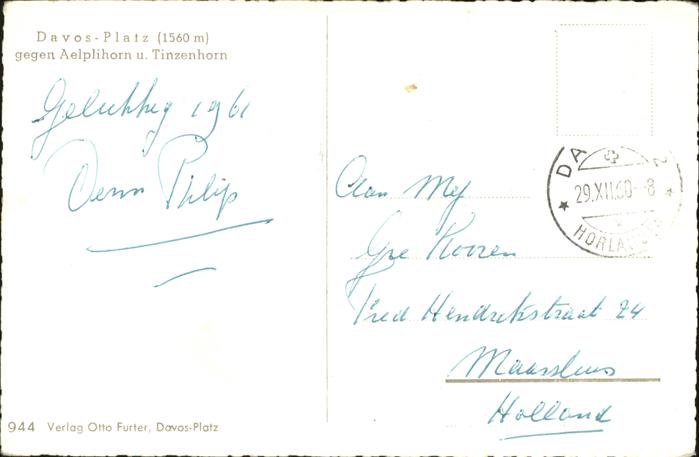 Davos-Platz (1560 m)
gegen Aelplihorn u. Tinzenhorn
Gelukkig 1961
Philip
DA 2
29.XII.60-8
HORLAUBEN
Aan Mej
Gre Koozen
Fred Hendrikstraat 24
Maassluis
Holland
944 Verlag Otto Furter, Davos-Platz